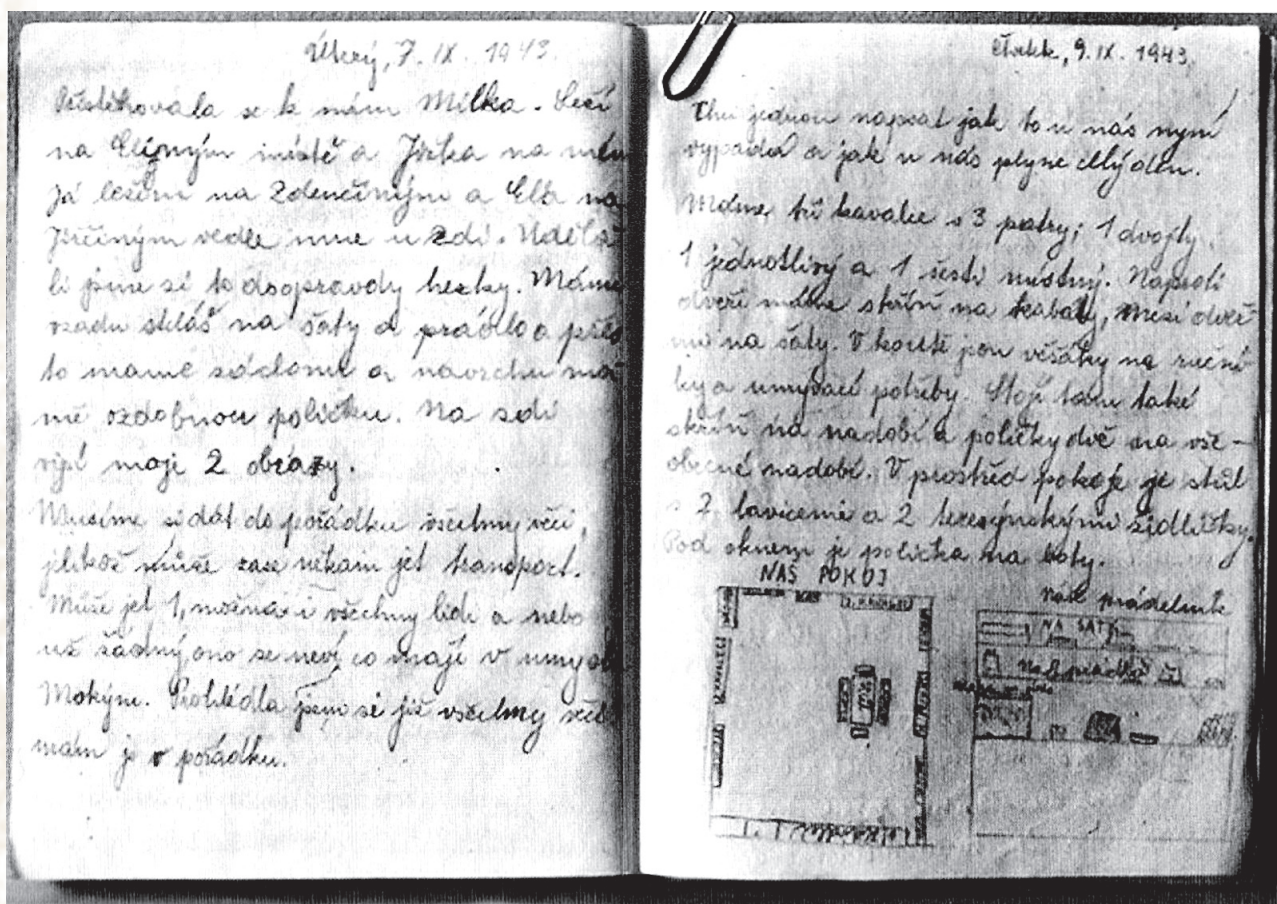 Úterý, 7. IX. 1943.
Přistěhovala se k nám Milka. Leží
na Elčiným místě a Jiřka na mém
Já ležím na Zdenčiným a Ela na
Jirčiným vedle mne u zdi. Udělal
li jsme si to doopravdy hezky. Máme
vzadu skláš na šaty a prádlo a přes
to mame záclonu a navrchu má
mé ozdobnou poličku. Na zdi
visí moje 2 obrazy.
Musíme si dát do pořádku všechny věci,
jelikož může zase někam jet transport.
Může jet 1, možná i všechny lidi a nebo
už žádný, ono se neví co mají v umyslu
Mokým. Prohlédla jsem si již všechny věci
mám je v pořádku.
Čtvrtek, 9. IX. 1943.
Chci jednou napsat jak to u nás nyní
vypadá a jak u nás plyne celý den.
Máme tři kavalce s 3 patry; 1 dvojtý
1 jednotlivý a 1 šesti místný. Naproti
dveří máme skříň na kabáty, mezi dveř
mi na šaty. V koutě jsou věšáky na ruční
ky a umývací potřeby. Stojí tam také
skříň na nadobí a poličky dvě na vše-
obecné nadobí. V prostřed pokoje je stůl
s 2 lavicemi a 2 terezýnskými židličky.
Pod oknem je polička na boty.
NÁŠ POKOJ
Náš prádelník
NA ŠATY
Na prádlo